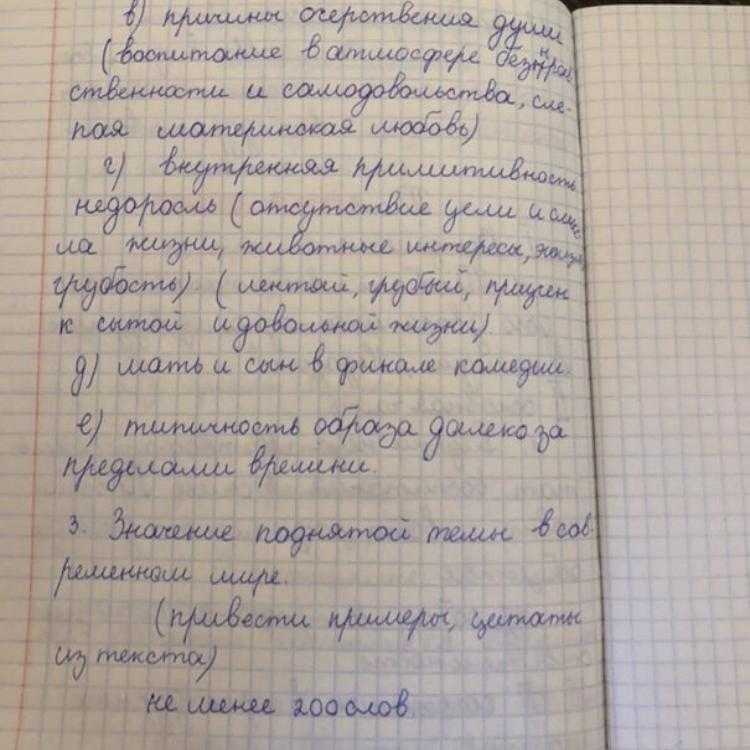 в) причины очерствения души
(воспитание в атмосфере безнрав
ственности и самодовольства, сле-
пая материнская любовь)
г) внутренняя примитивность
недоросль (отсутствие цели и смыс
ла жизни, животные интересы,
грубость) (лентяй, грубый,
к сытой и довольной жизни).
д) мать и сын в финале комедии.
е) типичность образа далеко за
пределами времени.
3. Значение поднятой темы в сов-
ременном мире.
(привести примеры, цитаты
из текста)
не менее 200 слов.